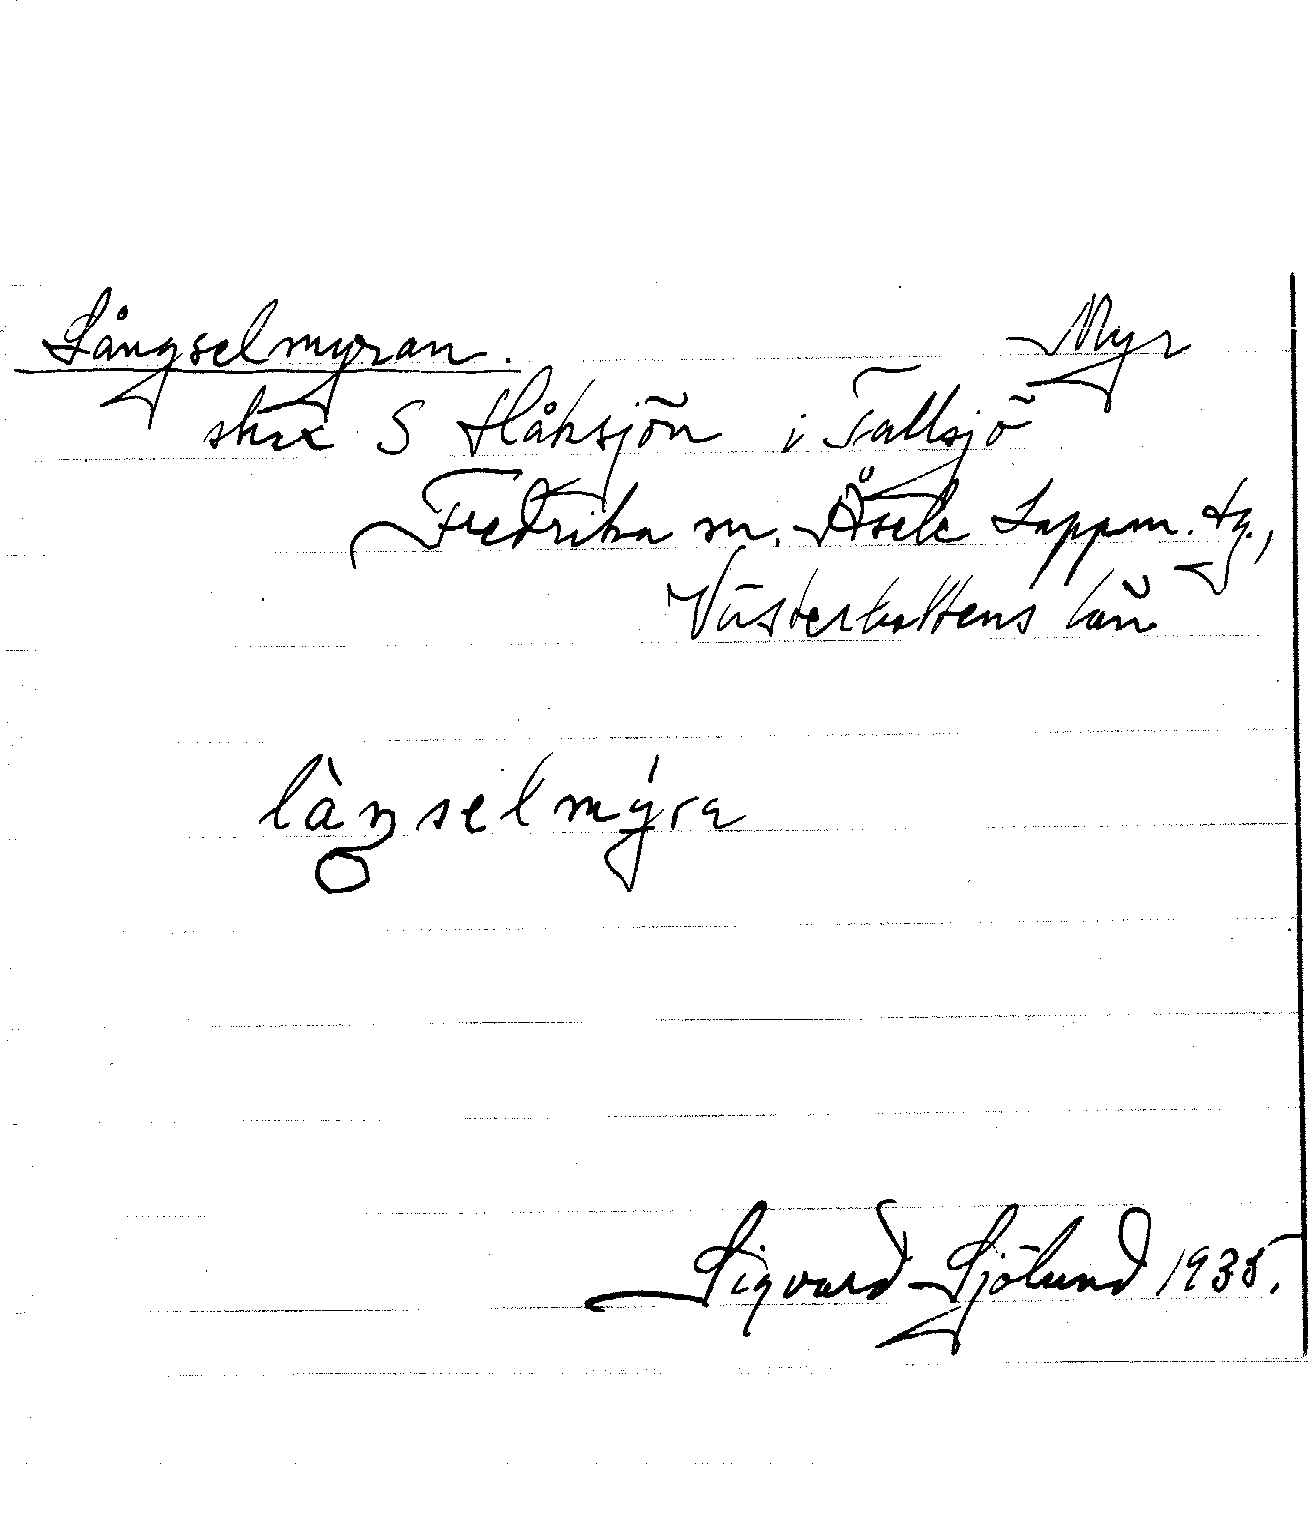 Långselmyran. Myr
strax S Håksjön i Tallsjö
Fredrika sn. Åsele Lappm. tg.,
Västerbottens län
làŋselmýra
Sigvard Sjölund 1935.